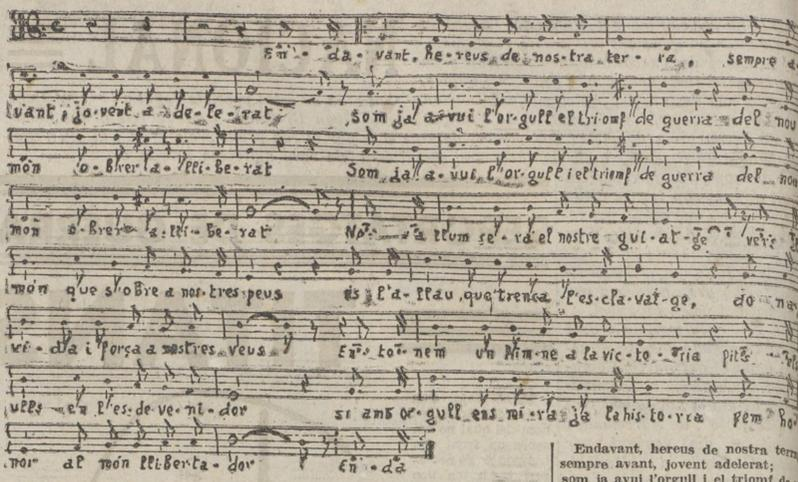 En - da - vant, he-reus de nos-tra ter - ra, sempre a
vant, jo-vent a-de-le-rat, som ja a-vui l'or-gull el triomf de guerra del nou
món o-brer a-lli-be-rat Som ja a-vui l'or-gull i el triomf de guerra del nou
món o-brer a-lli-be-rat llum se-rà el nostre gui-at-ge vers
món que s'obre a nos-tres peus és l'a-llau que trenca l'es-cla-vat-ge, do na
vi-da i força a nostres veus En-to-nem un Him-ne a la vic-to-ria pits
ulls en l'es-de-ve-ni-dor si amb or-gull ens mi-ra ja la his-to-ria fem ho
nor al món lliberta-dor En-da
Endavant, hereus de nostra terra
sempre avant, jovent adelerat;
som ja avui l'orgull i el triomf de